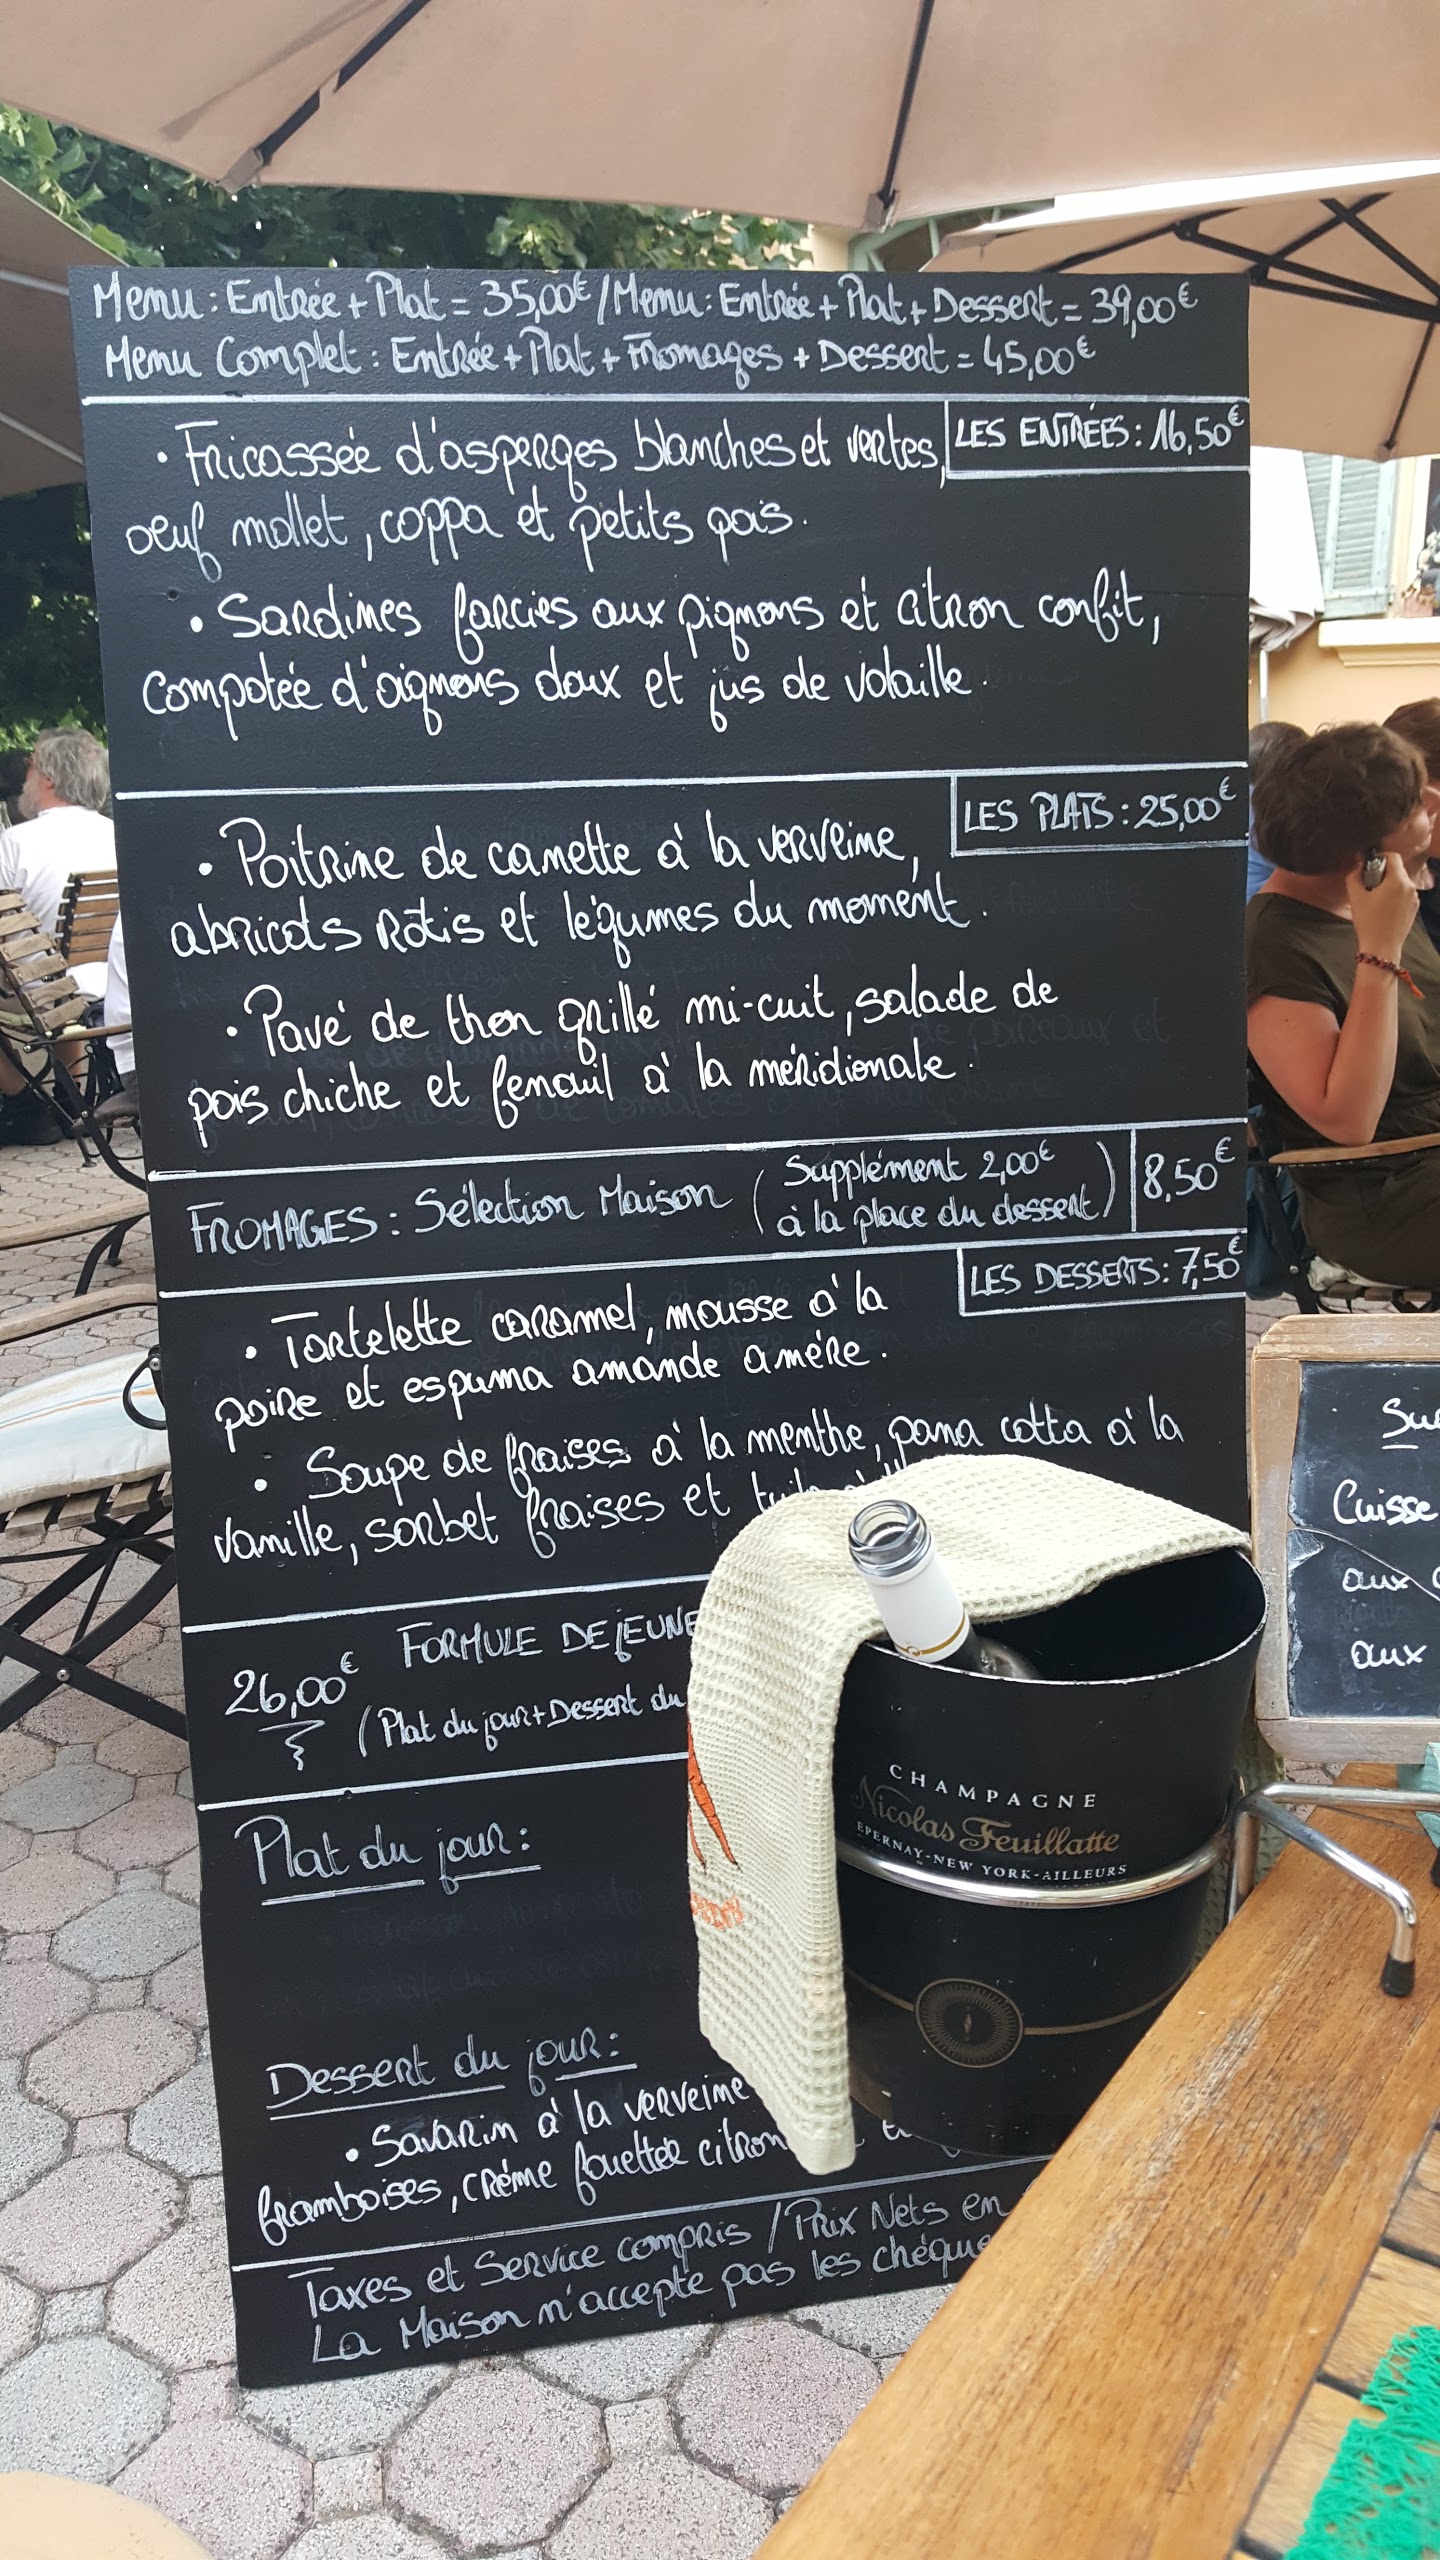 Menu : Entrée + Plat = 35,00€ / Menu : Entrée + Plat + Dessert = 39,00€
Menu Complet : Entrée + Plat + Fromages + Dessert = 45,00€
LES ENTRÉES : 16,50€
• Fricassée d'asperges blanches et vertes,
oeuf mollet, coppa et petits pois.
• Sardines farcies aux pignons et citron confit,
compotée d'oignons doux et jus de volaille.
LES PLATS : 25,00€
• Poitrine de canette à la verveine,
abricots rôtis et légumes du moment.
• Pavé de thon grillé mi-cuit, salade de
pois chiche et fenouil à la méridionale.
FROMAGES : Sélection Maison (Supplément 2,00€
à la place du dessert) 8,50€
LES DESSERTS : 7,50€
• Tartelette caramel, mousse à la
poire et espuma amande amère.
• Soupe de fraises à la menthe, pana cotta à la
vanille, sorbet fraises et
FORMULE DEJEUNE
26,00€
(Plat du jour + Dessert du
Plat du jour :
Dessert du jour :
• Savarin à la verveine
framboises, crème fouettée citron
Taxes et Service compris / Prix Nets en
La Maison n'accepte pas les chèque
CHAMPAGNE
Nicolas Feuillatte
EPERNAY-NEW YORK-AILLEURS
Su
Cuisse
aux
aux